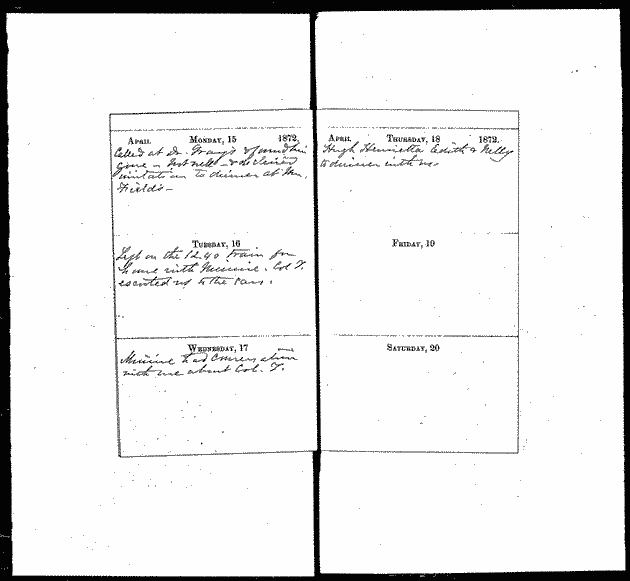 April Monday, 15 1872.
Called at Dr. & found him
gone - Not well - & declined
invitation to dinner at Mr.
Field's -
Tuesday, 16
Left on the 12.40 train for
home with Minnie. Col T.
escorted us to the cars.
Wednesday, 17
Minnie had conversation
with me about Col. T.
April Thursday, 18 1872.
Hugh Henrietta Edith & Nelly
to dinner with us
Friday, 19
Saturday, 20